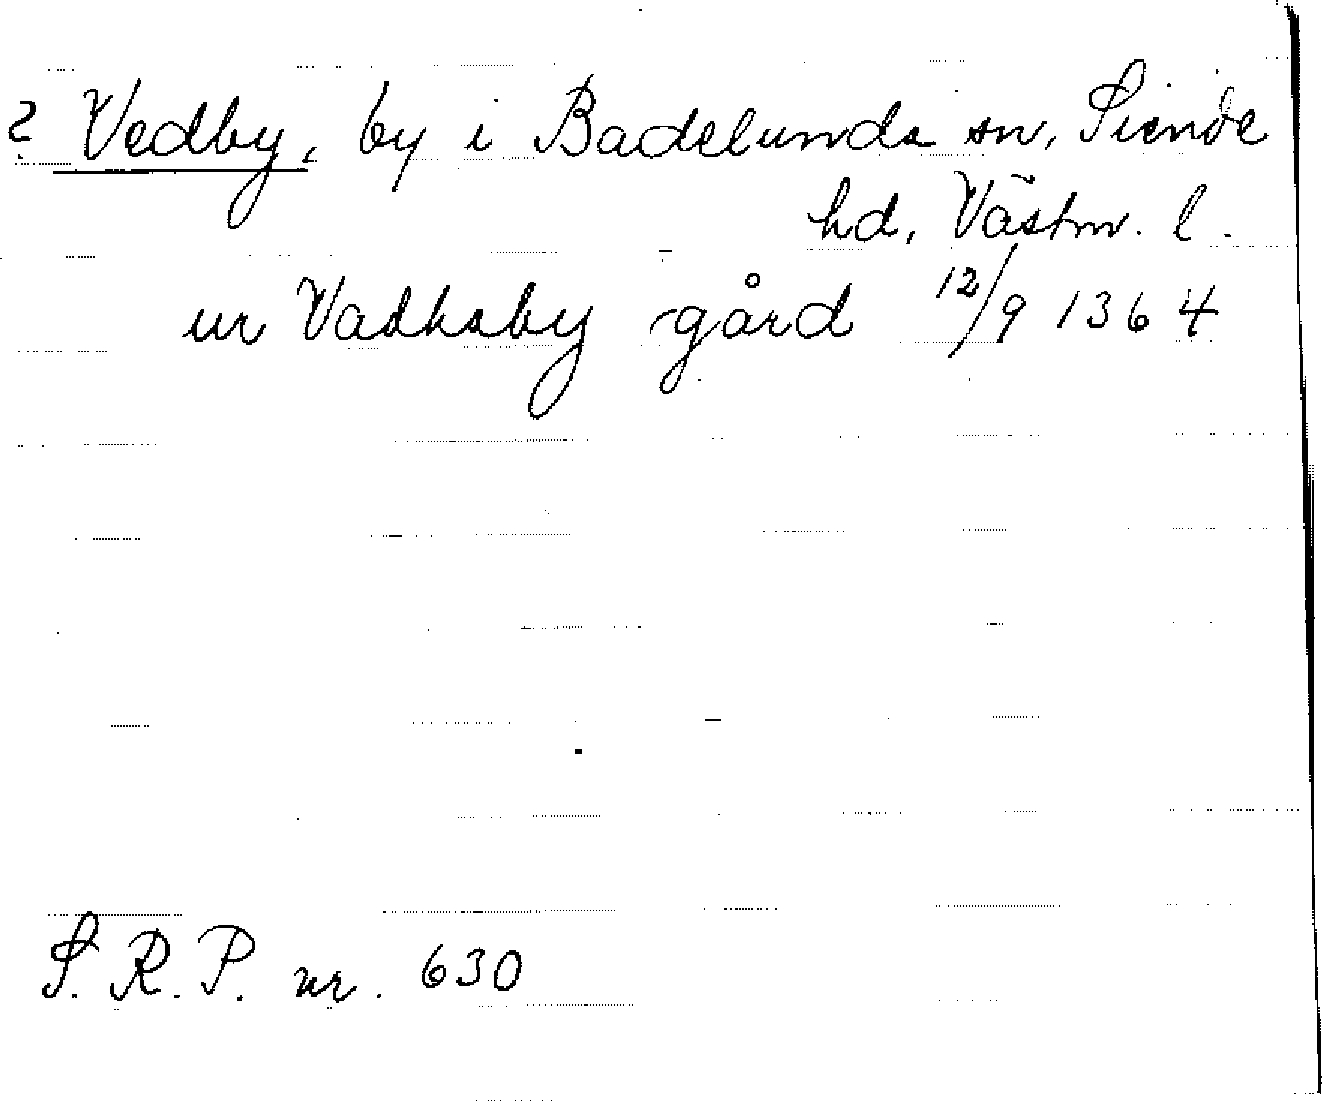 ? Vedby, by i Badelunds sn, Siende
hd, Västm. l.
ur Vadhsby gård 12/9 1364
S. R. P. nr. 630